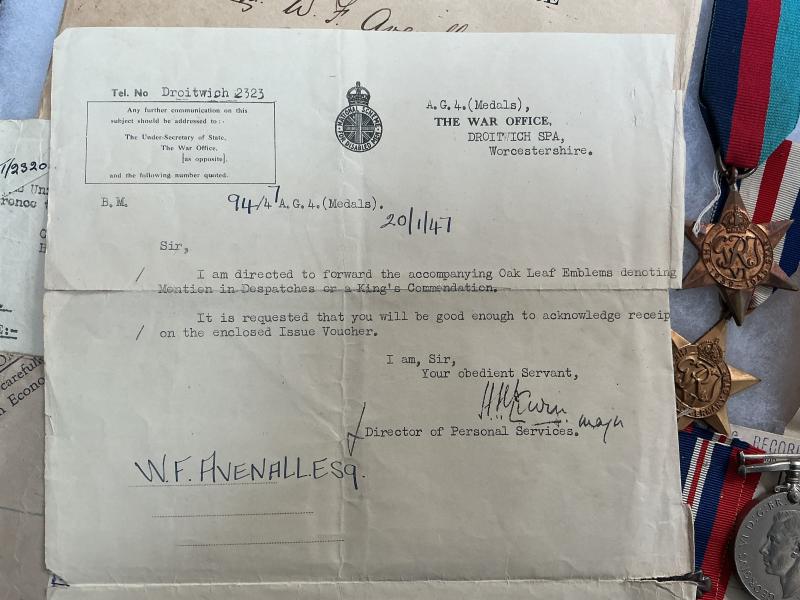 W. F. Avenall
Tel. No Droitwich 2323
Any further communication on this
subject should be addressed to :-
The Under-Secretary of State,
The War Office,
[as opposite].
and the following number quoted.
NATIONAL SCHEME
FOR DISABLED MEN
A.G.4.(Medals),
THE WAR OFFICE,
DROITWICH SPA,
Worcestershire.
B.M. 94/47 A.G.4.(Medals).
20/1/47
Sir,
/ I am directed to forward the accompanying Oak Leaf Emblems denoting
Mention in Despatches or a King's Commendation.
It is requested that you will be good enough to acknowledge receip
/ on the enclosed Issue Voucher.
I am, Sir,
Your obedient Servant,
major
/ Director of Personal Services.
W.F. AVENALL ESQ.
/2320
E:-
careful
n Econo
GRI
VI
RECOR